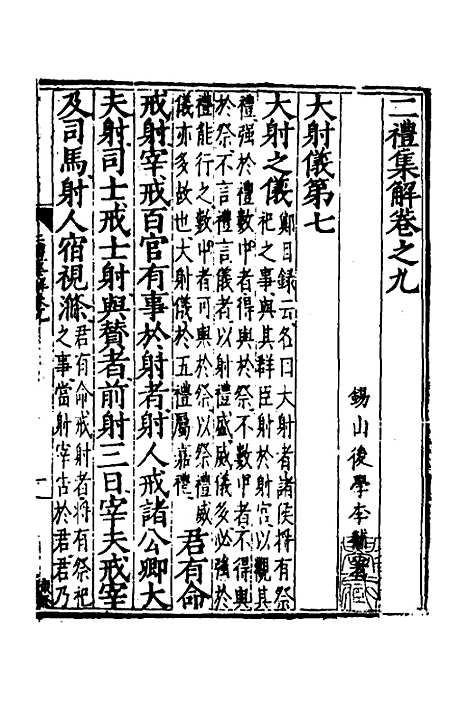 二禮集解卷之九
錫山後學李黼著
大射儀第七
大射之儀 鄭目録云名曰大射者諸侯將有祭
祀之事與其群臣射於射宮以觀其
禮強於禮數中者得與於祭不數中者不得與
於祭不言禮言儀者以射禮盛威儀多必強於
禮能行之數中者可與於祭以祭禮威
儀亦多故也大射儀於五禮屬嘉禮 君有命
戒射宰戒百官有事於射者射人戒諸公卿大
夫射司士戒士射與贊者前射三日宰夫戒宰
及司馬射人宿視滌 君有命戒射者將有祭祀
之事當射宰古於君君乃